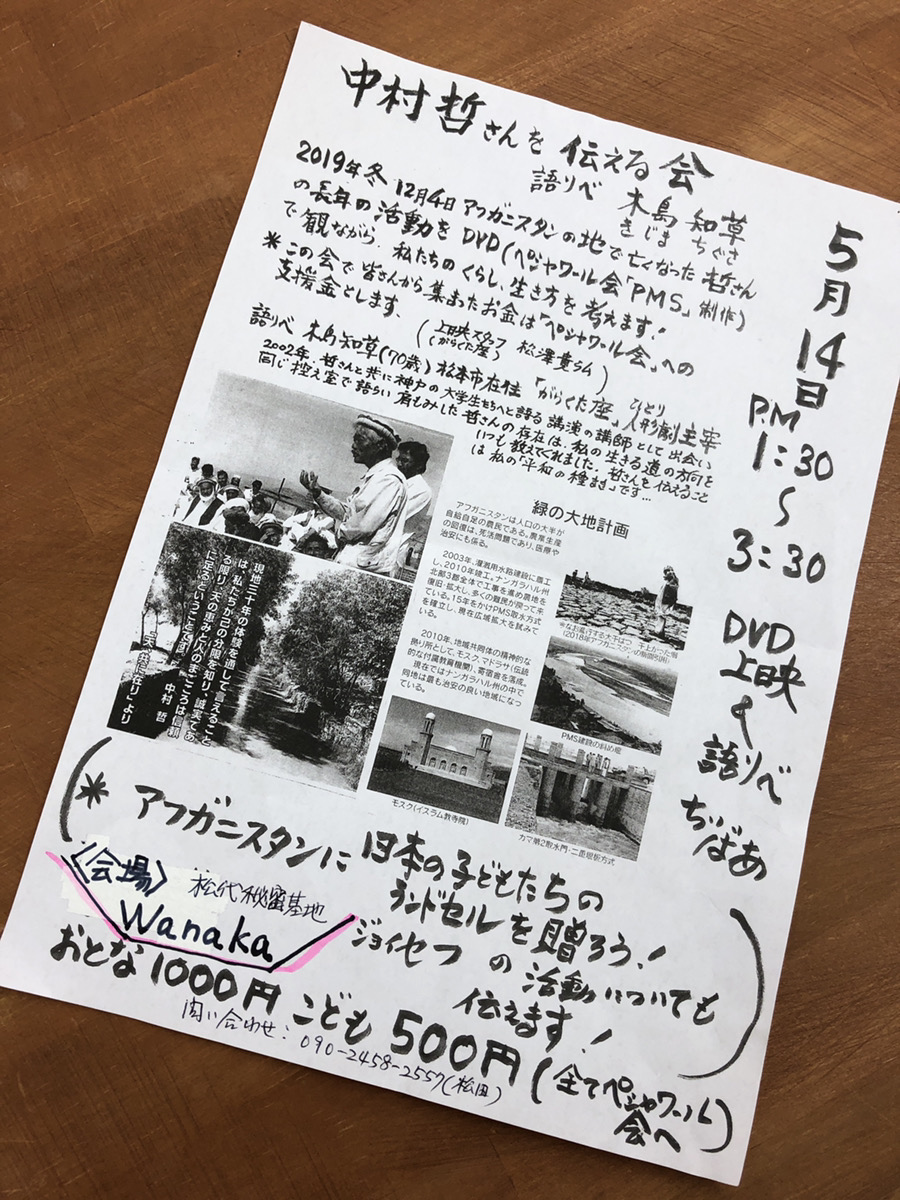 中村哲さんを伝える会
語りべ 木島知草
きじま ちぐさ
2019年冬 12月4日アフガニスタンの地で亡くなった哲さん
の長年の活動をDVD(ペシャワール会「PMS」制作)
で観ながら、私たちのくらし、生き方を考えます!
*この会で皆さんから集まったお金は「ペシャワール会」への
支援金とします。
(上映スタッフ 松澤寛さん)
(がらくた座)
語りべ 木島知草(70歳)松本市在住 「がらくた座」ひとり人形劇主宰
2002年、哲さんと共に神戸の大学生たちへと語る講演の講師として出会い
同じ控え室で語らい肩もみした哲さんの存在は、私の生きる道の方向を
いつも教えてくれました。哲さんを伝えること
は私の「平和の種まき」です…
5月14日
P.M
1:30
〜
3:30
DVD
上映
&
語りべ
ぢばあ
緑の大地計画
アフガニスタンは人口の大半が
自給自足の農民である。農業生産
の回復は、死活問題であり、医療や
治安にも係る。
2003年、灌漑用水路建設に着工
し、2010年竣工。ナンガラハル州
北部3郡全体で工事を進め農地を
復旧・拡大し、多くの難民が戻って来
ている。15年をかけPMS取水方式
を確立し、現在広域拡大を試みて
いる。
2010年、地域共同体の精神的な
拠り所として、モスク、マドラサ(伝統
的な付属教育機関)、寄宿舎を落成。
現在ではナンガラハル州の中で
同地は最も治安の良い地域になっ
ている。
現地三十年の体験を通して言えること
は、私たちが己の分限を知り、誠実であ
る限り、天の恵みと人のまごころは信頼
に足るということです。
中村 哲
「天、共に在り」より
※なお進行する大干ばつ、干上がった畑
(2018年アフガニスタンの新聞引用)
PMS建設の斜め堰
モスク(イスラム教寺院)
カマ第2取水門・二重堰板方式
(*アフガニスタンに日本の子どもたちの
ランドセルを贈ろう!
ジョイセフの活動についても
伝えます!)
〈会場〉 松代秘密基地
Wanaka
おとな1000円 こども500円(全てペシャワール会へ)
問い合わせ:090-2458-2557(松田)